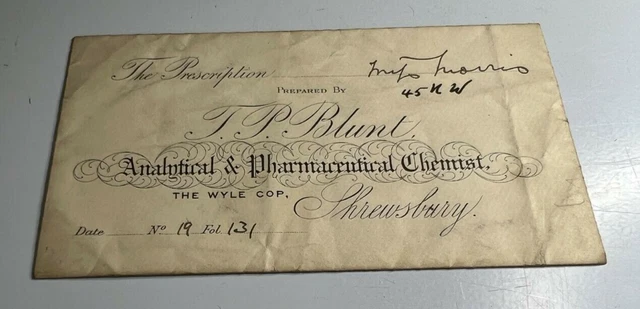 The Prescription Miss Morris
PREPARED BY
45 N W
T. P. Blunt,
Analytical & Pharmaceutical Chemist,
THE WYLE COP,
Shrewsbury.
Date No 19 Fol. 131